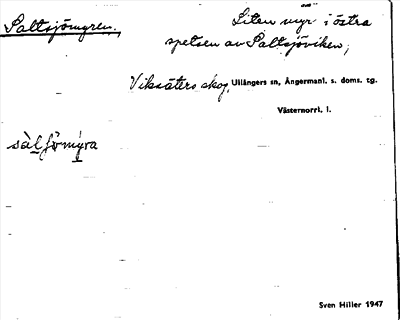 Saltsjömyren.
Liten myr i östra
spetsen av Saltsjöviken;
Viksäters skog, Ullångers sn, Ångermanl. s. doms. tg.
Västernorrl. l.
sàl̲fö̀mýra
Sven Hiller 1947